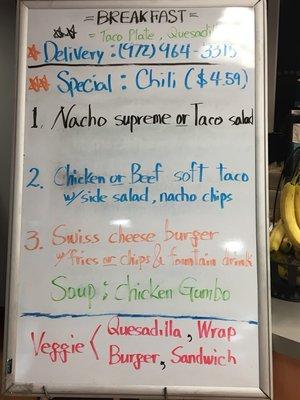 = BREAKFAST =
= Taco Plate, Quesadilla
Delivery: (972) 964-3315
Special: Chili ($4.59)
1. Nacho supreme or Taco salad
2. Chicken or Beef soft taco
w/side salad, nacho chips
3. Swiss cheese burger
w/fries or chips & fountain drink
Soup: Chicken Gumbo
Veggie < Quesadilla, Wrap
Burger, Sandwich